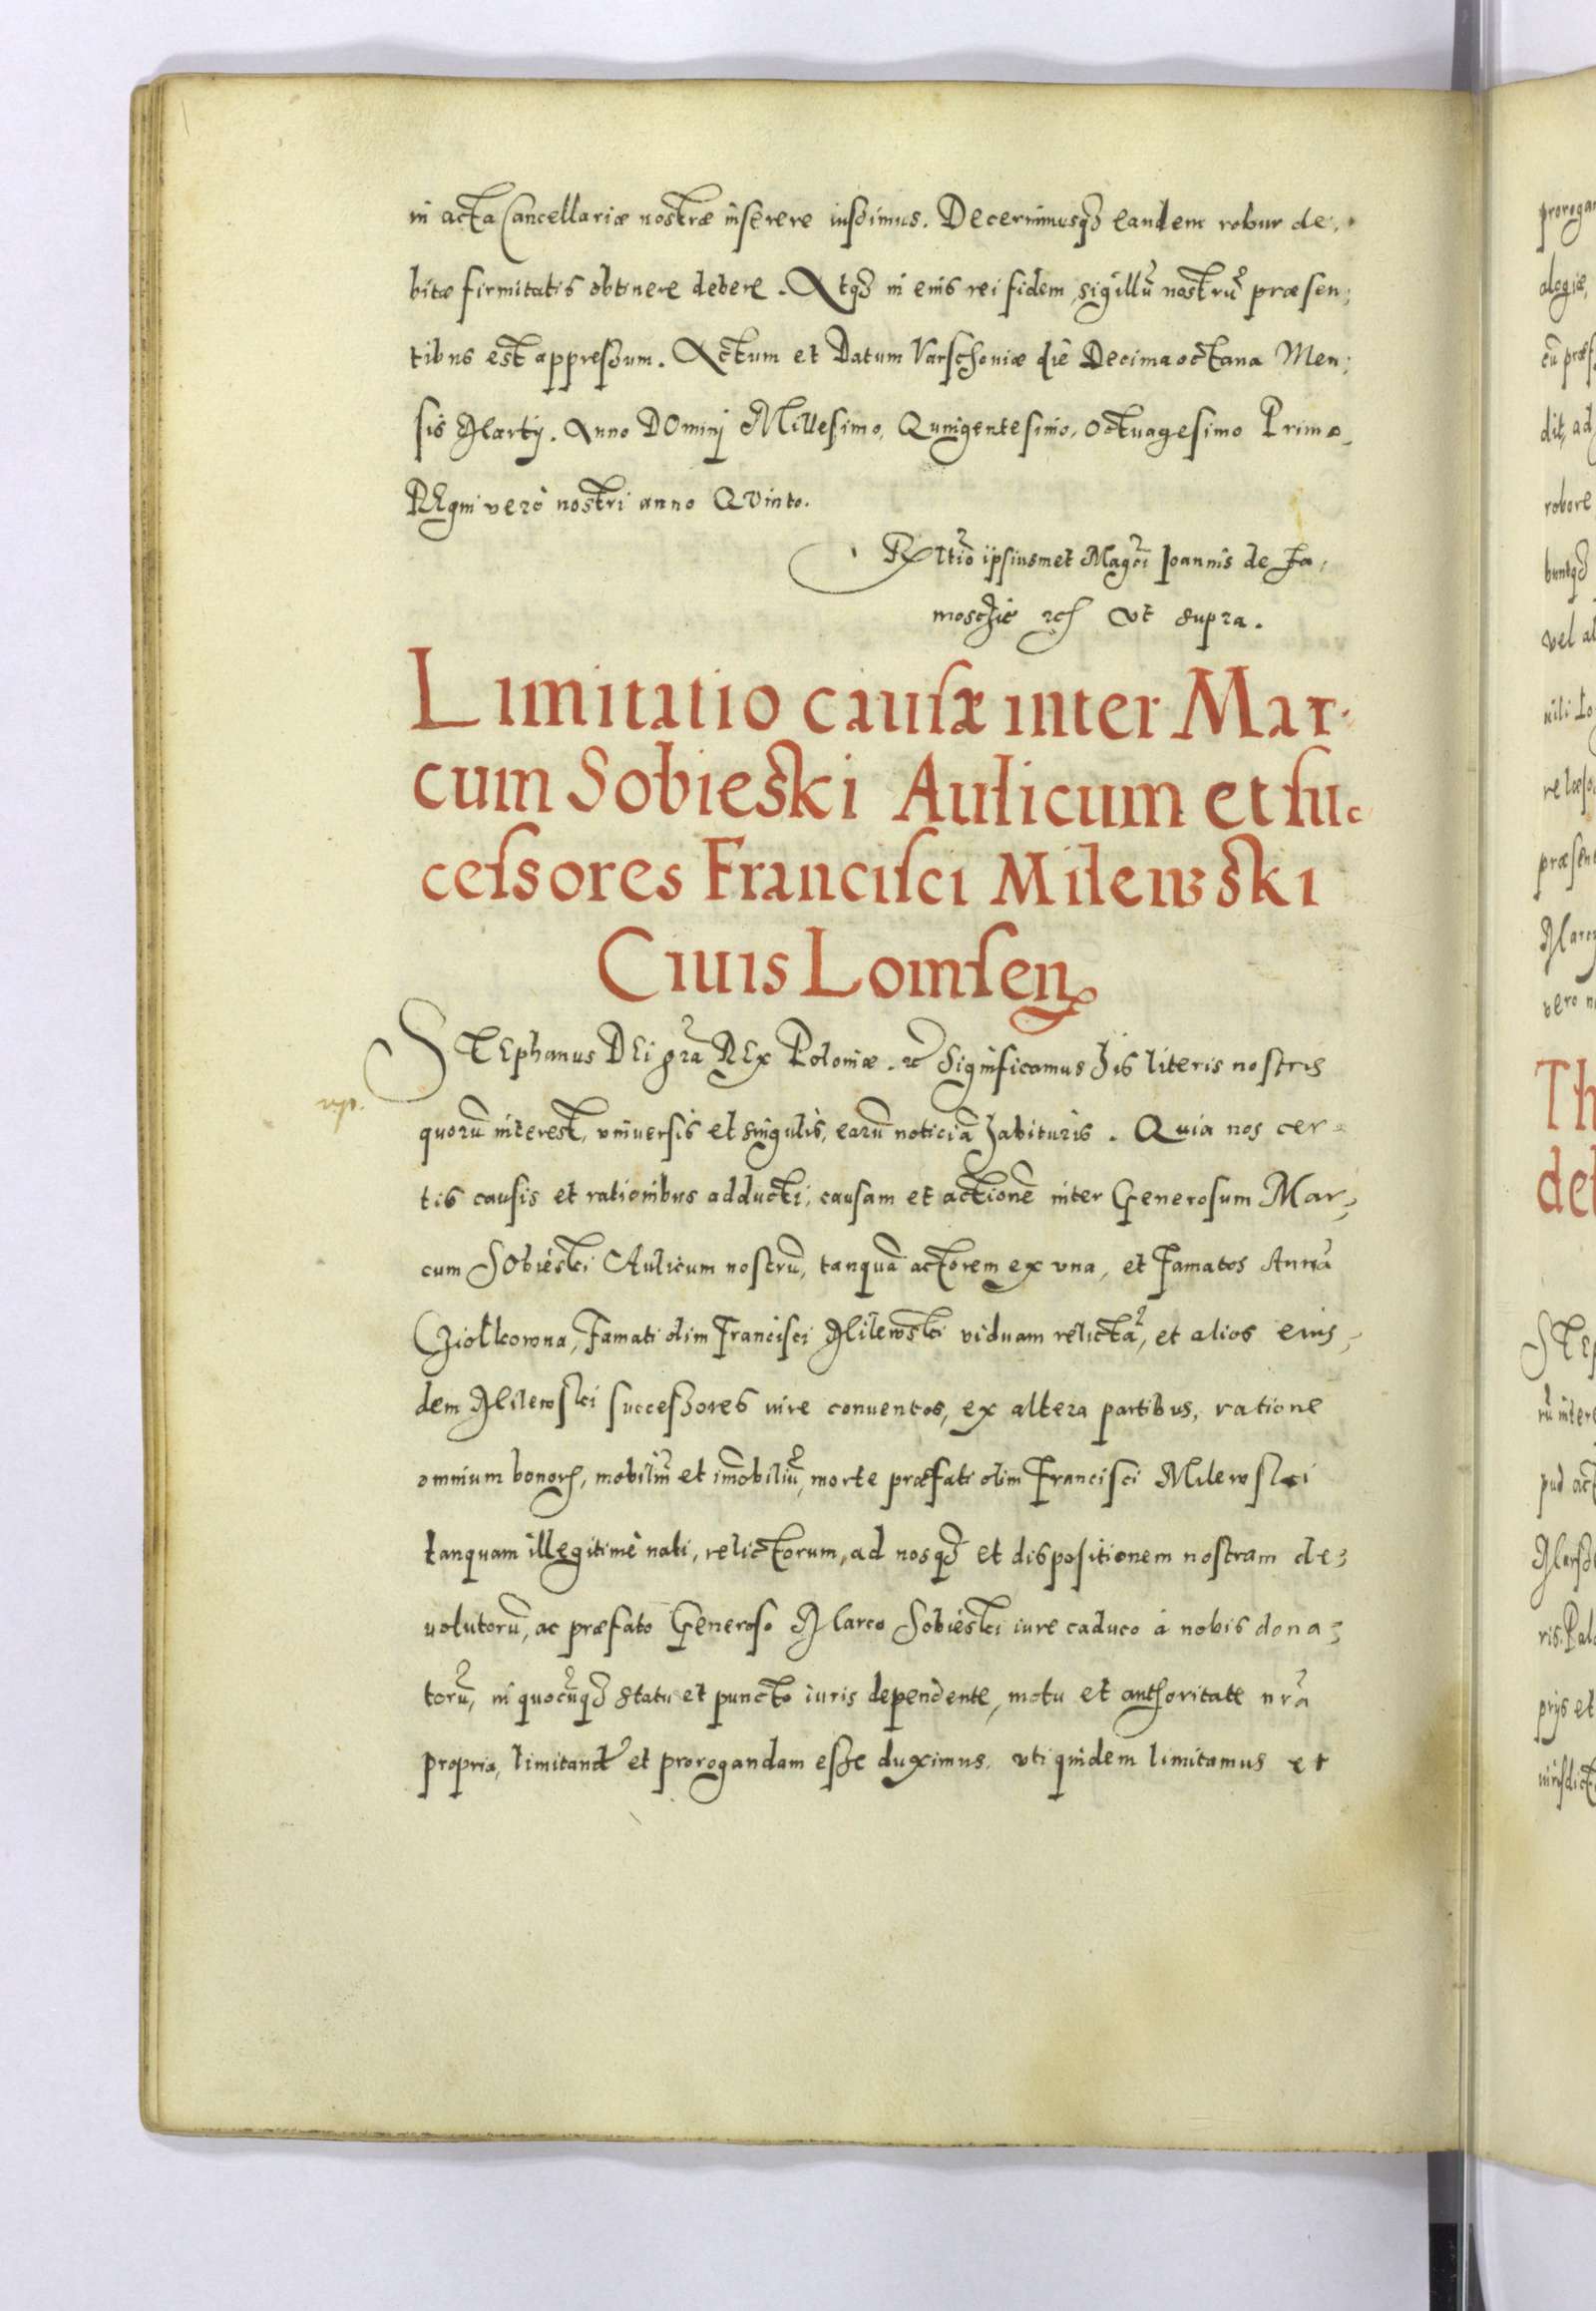 in acta Cancellariæ nostræ inserere iussimus. Decernimusq3 eandem robur de:
bitæ firmitatis obtinere debere. Atq3 in eius rei fidem, sigillũ nostrũ præsen:
tibus est appressum. Actum et Datum Varschouiæ die Decima octaua Men:
sis Martij. Anno DOminj Millesimo, Quingentesimo, octuagesimo Primo,
REgni verò nostri anno QVinto.
Rltio ipsiusmet Magci Joannis de Za:
moschie etc Vt supra.
Limitatio causæ inter Mar-
cum Sobieski Aulicum et suc
cessores Francisci Milewski
Ciuis Lomsen
STEphanus DEi gra REx Poloniæ. etc Significamus his literis nostris
vip.
quorũ interest, vniuersis et singulis, earũ noticiã habituris. Quia nos cer-
tis causis et rationibus adducti, causam et actionẽ inter Generosum Mar:
cum SObieski Aulicum nostrũ, tanquã actorem ex vna, et Famatos Annã
Cziolkowna, Famati olim Francisci Milewski viduam relictã, et alios eius:
dem Milewski successores iure conuentos, ex altera partibus, ratione
omnium bonorũ, mobiliũ et imobiliũ, morte præfati olim Francisci Milewski
tanquam illegitimè nati, relictorum, ad nosq3 et dispositionem nostram de:
uolutorũ, ac præfato Generoso Marco Sobieski iure caduco à nobis dona:
torũ, in quocũq3 statu et puncto iuris dependente, motu et authoritate nra
propria, limitand et prorogandam esse duximus, vti quidem limitamus et
proroga
alegiæ,
cũ præf
dit, ad
robore
buntq3
vel al
nili to
præsen
vero n
Th
de
STEp
rũ inter
pud act
prijs et